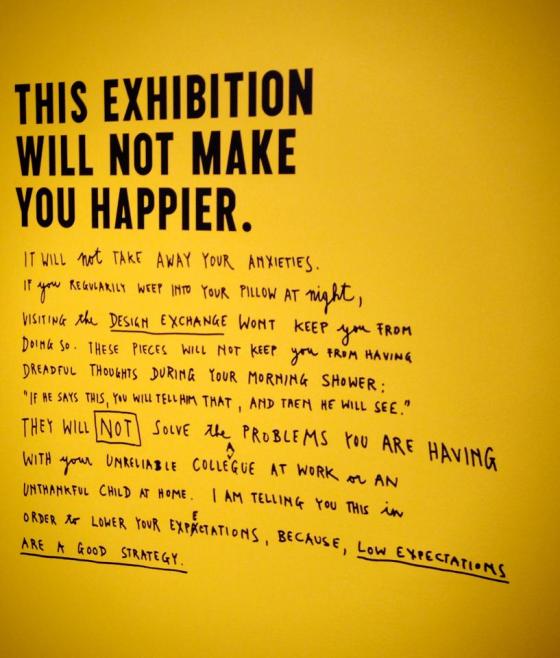 THIS EXHIBITION
WILL NOT MAKE
YOU HAPPIER.
IT WILL not TAKE AWAY YOUR ANXIETIES.
IF you REGULARILY WEEP INTO YOUR PILLOW AT night,
VISITING the DESIGN EXCHANGE WONT KEEP you FROM
DOING SO. THESE PIECES WILL NOT KEEP you FROM HAVING
DREADFUL THOUGHTS DURING YOUR MORNING SHOWER:
"IF HE SAYS THIS, YOU WILL TELL HIM THAT, AND THEN HE WILL SEE."
THEY WILL NOT SOLVE the PROBLEMS YOU ARE HAVING
WITH your UNRELIABLE COLLEAGUE AT WORK or AN
UNTHANKFUL CHILD AT HOME. I AM TELLING YOU THIS in
ORDER to LOWER YOUR EXPECTATIONS, BECAUSE, LOW EXPECTATIONS
ARE A GOOD STRATEGY.